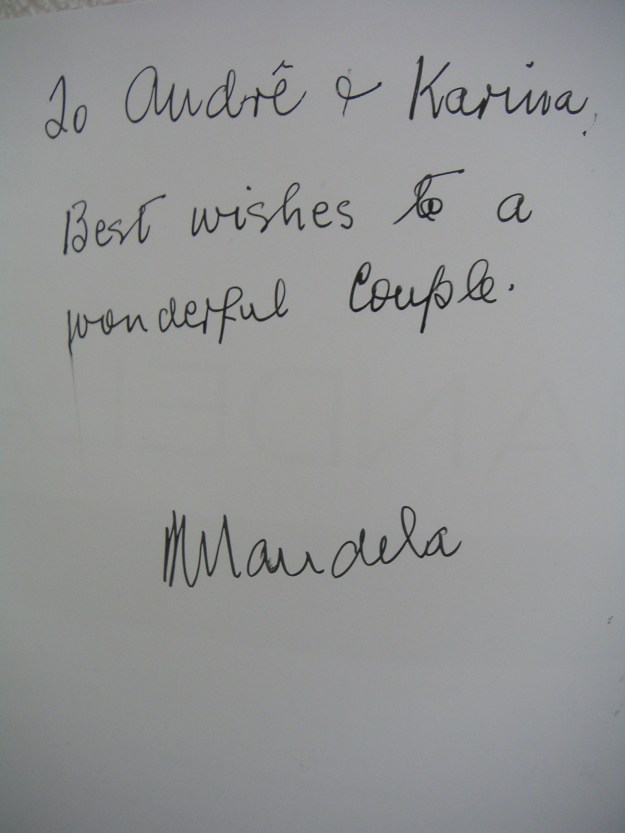 To André & Karina,
Best wishes to a
wonderful couple.
NMandela